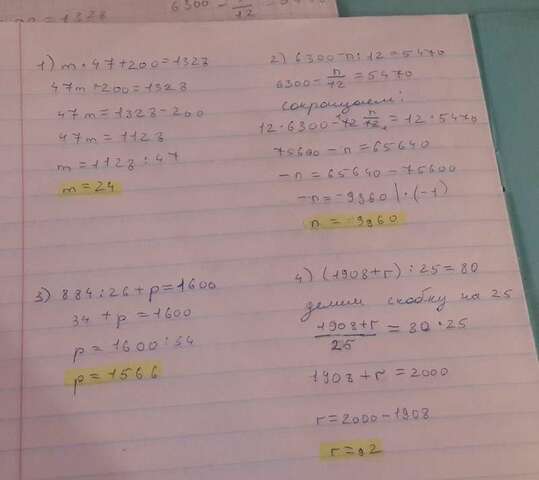 6300 -
12
1) m · 47 + 200 = 1328
47m + 200 = 1328
47m = 1328 - 200
47m = 1128
m = 1128 : 47
m = 24
2) 6300 - n : 12 = 5470
6300 - n/12 = 5470
сокращаем:
12 · 6300 - 12 n/12 = 12 · 5470
75600 - n = 65640
-n = 65640 - 75600
-n = -9960 | · (-1)
n = -9960
3) 884 : 26 + p = 1600
34 + p = 1600
p = 1600 : 34
p = 1566
4) (1908 + r) : 25 = 80
делим скобку на 25
1908 + r/25 = 80 · 25
1908 + r = 2000
r = 2000 - 1908
r = 92